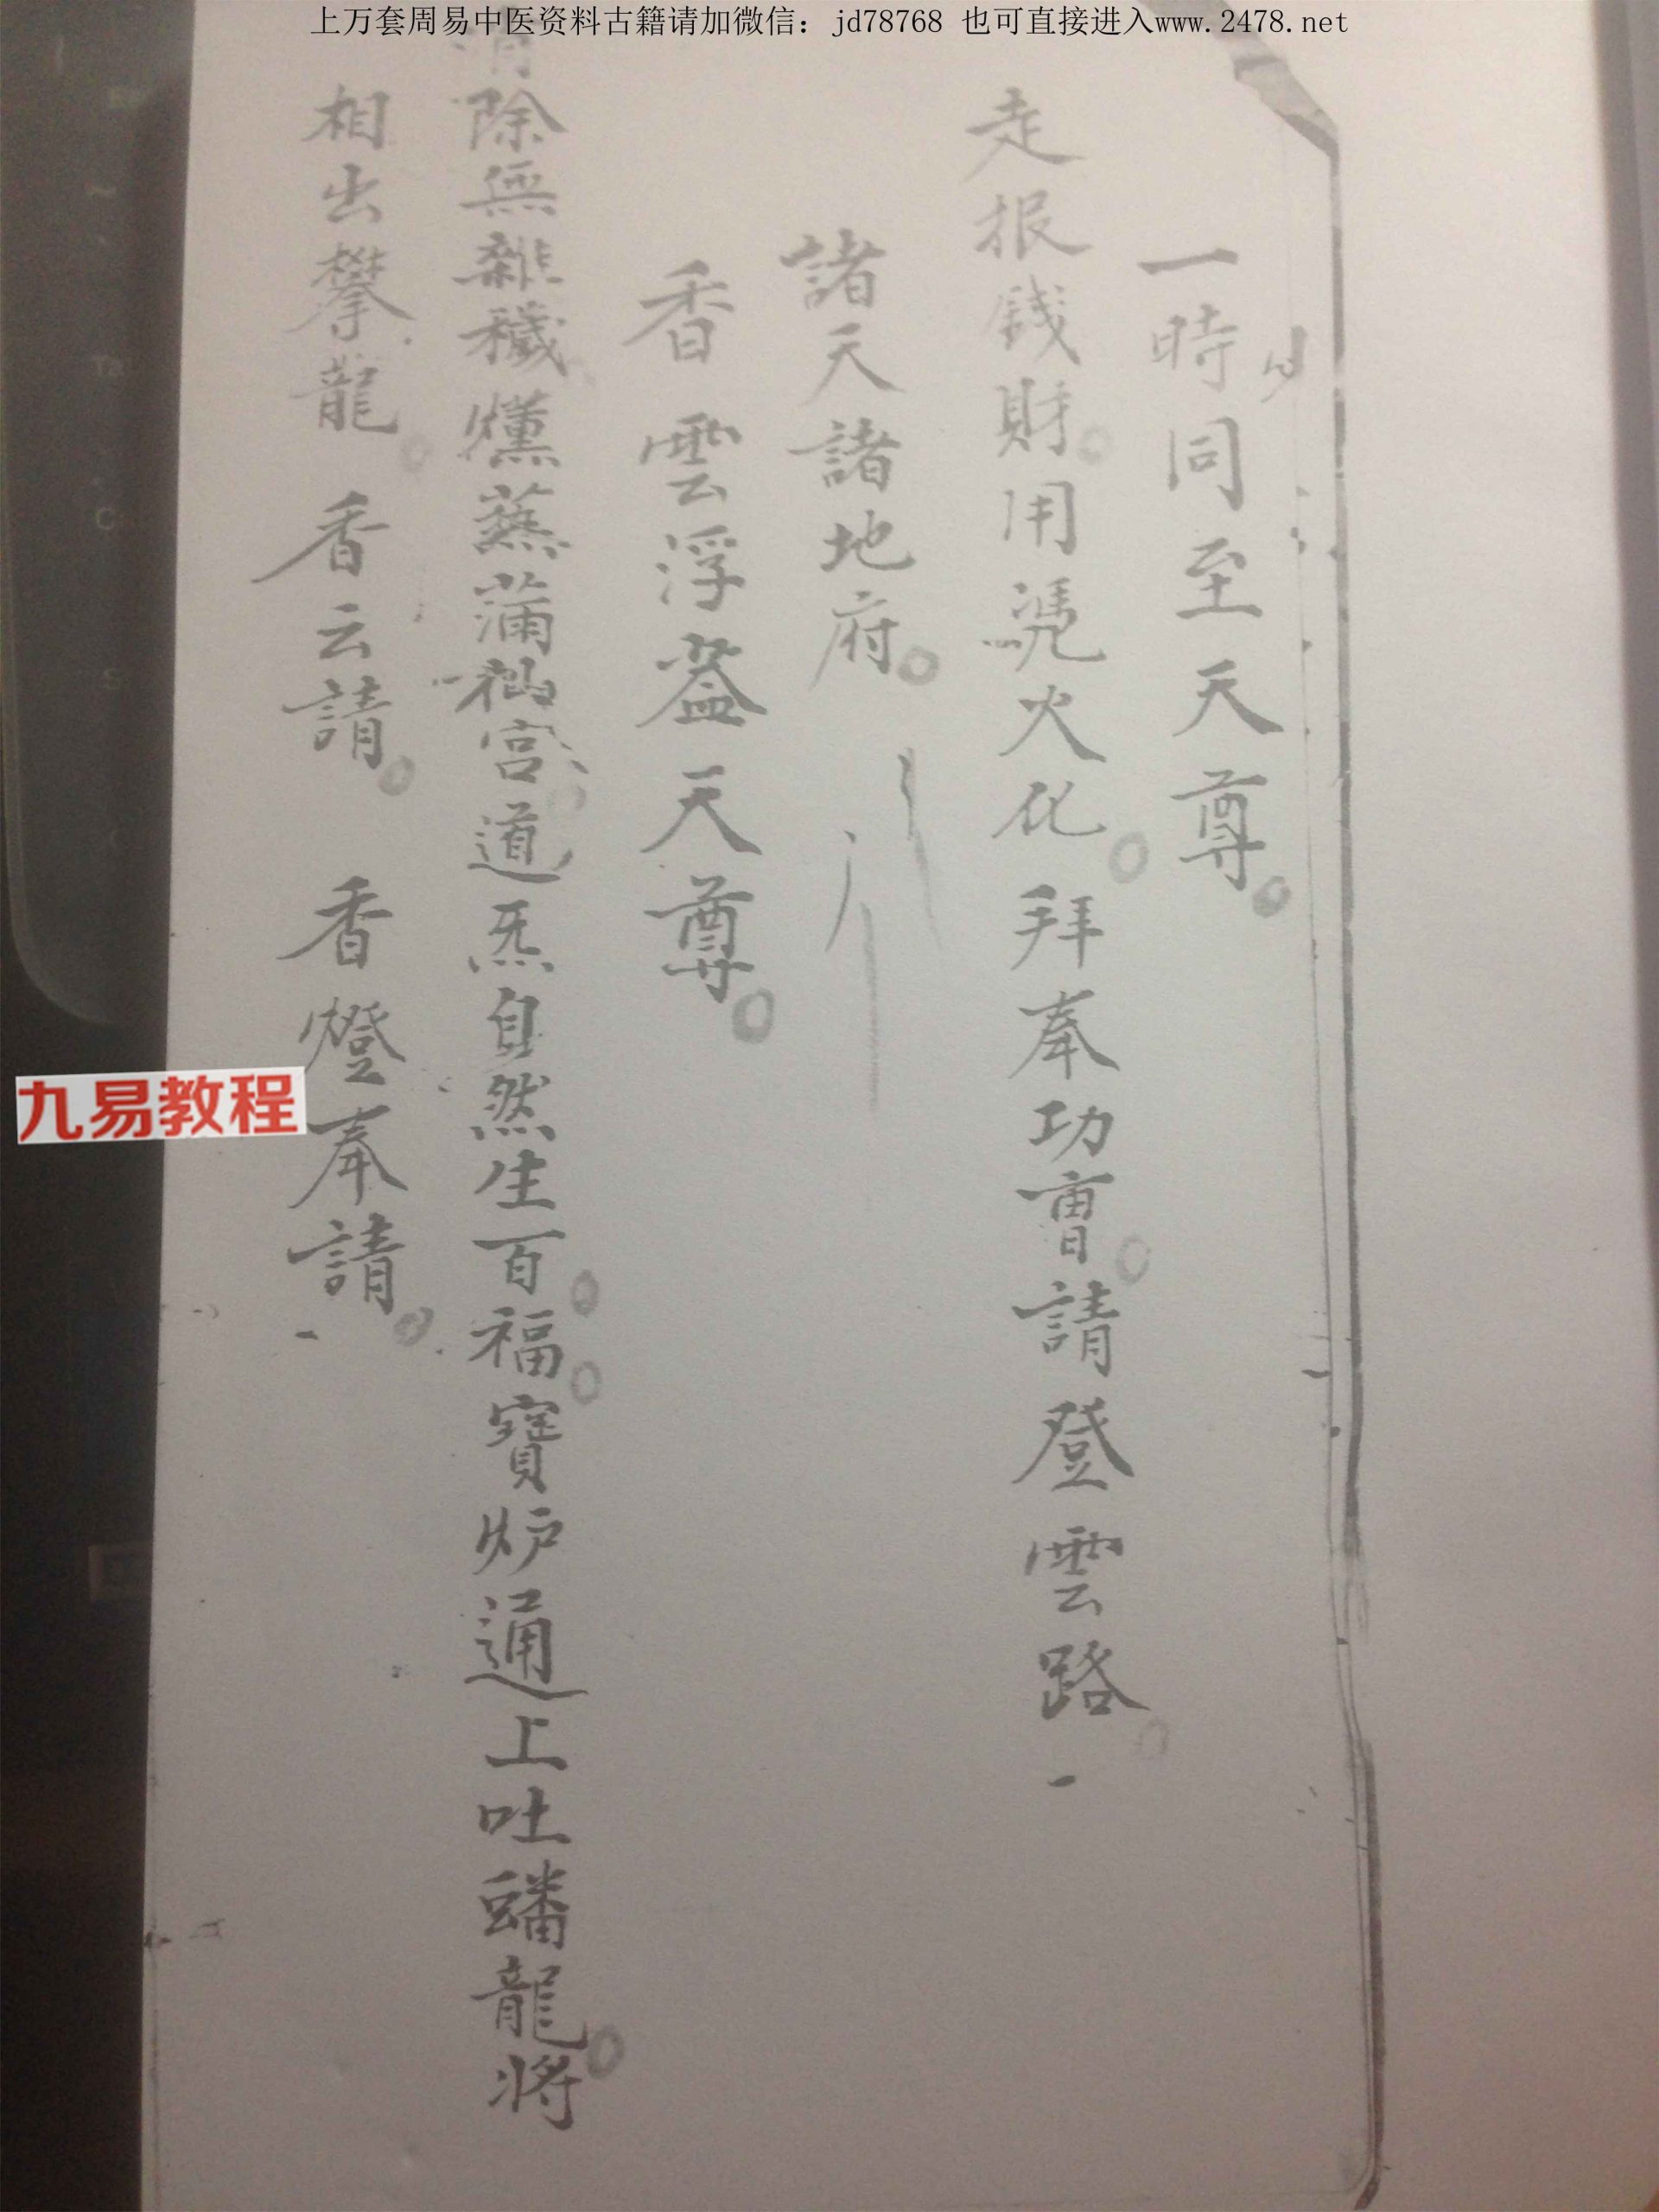 上万套周易中医资料古籍请加微信：jd78768 也可直接进入www.2478.net
一時同至天尊。
走报錢財。用凴火化。拜奉功曹。請登雲路。
諸天諸地府。
香雲浮盖天尊。
消除無雜穢爑蒸滿秈宮。道炁自然生百。福。寶炉通上吐蟠龍。將
相出攀龍。香云請。香燈奉請。
九易教程